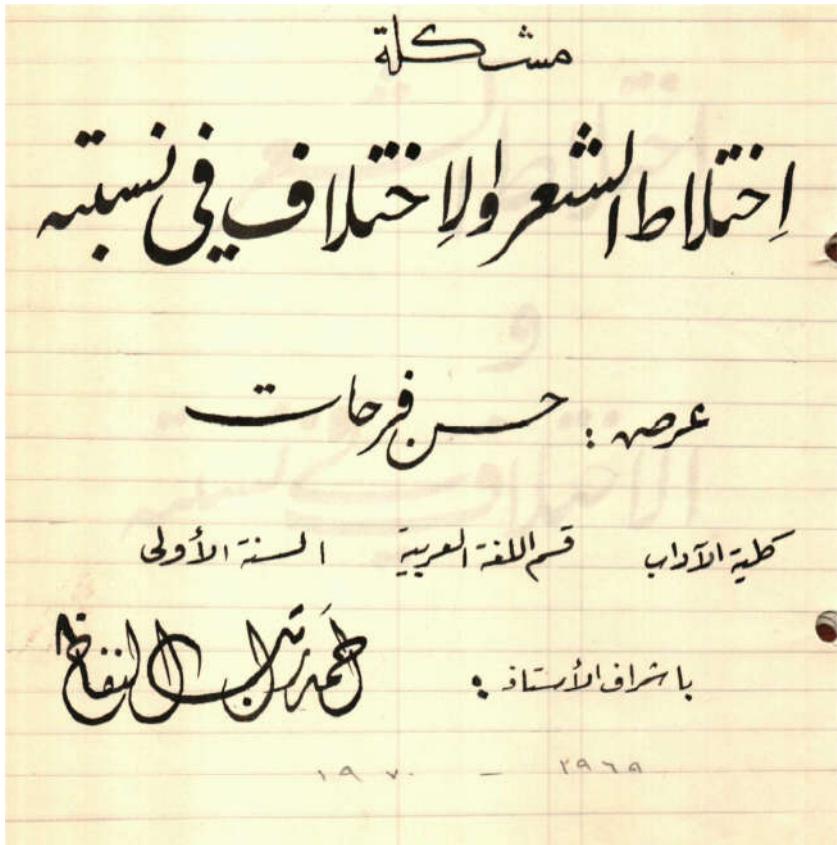 مشكلة
اِختلاط الشعر والاِختلاف في نسبته
عرض : حسن فرحات
كلية الآداب قسم اللغة العربية السنة الأولى
باشراف الأستاذ : أحمد راتب النفاخ
١٩٦٩ - ١٩٧٠